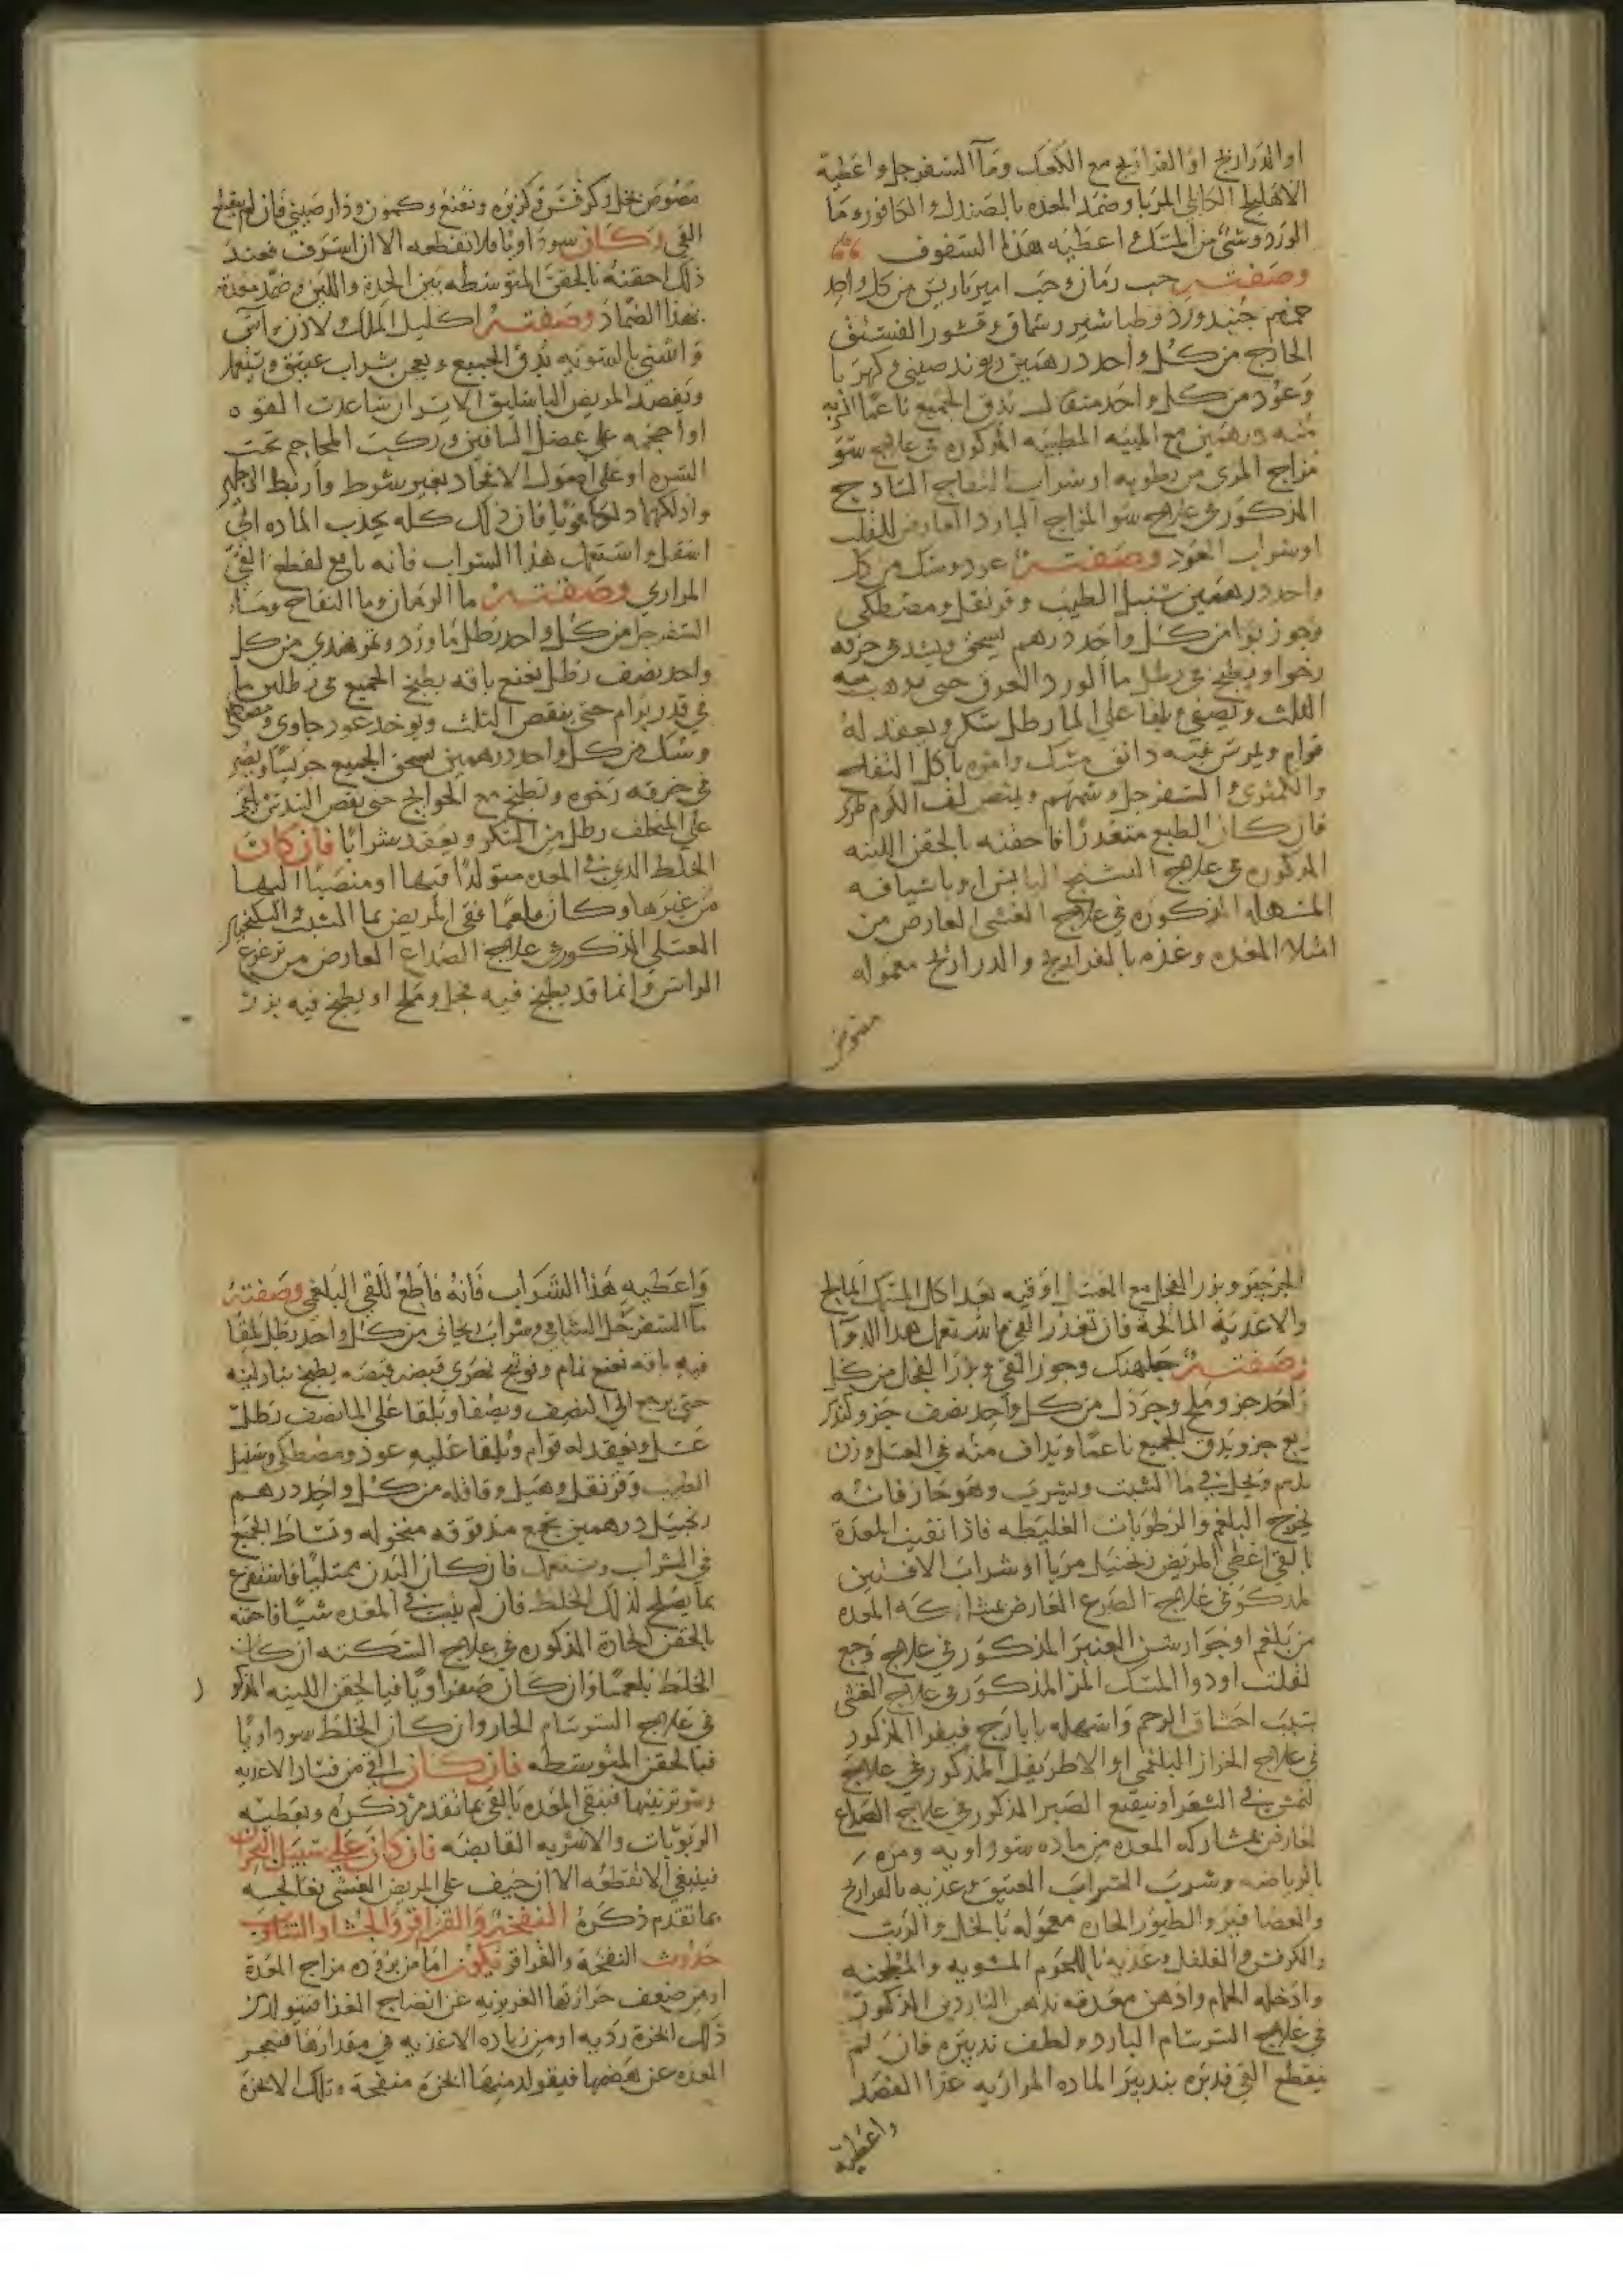 او الدراريج او الفراريج مع الكعك وما السفرجل واعطيه
الاهليلج الكابلي المربا وضمد المعده بالصندل والكافور وما
الورد وشى من المسك واعطيه هذا السفوف
وصفته حب رمان وحب امير باريس من كل واحد
وورد وطباشير وسماق وقشور الفستق
الخارج من كل واحد درهمين ريوند صيني وكهربا
وعود من كل واحد مثقال يدق الجميع ناعما الشربه
منه درهمين مع الميبه المطيبه المذكوره في علاج سو
مزاج المرى من رطوبه او شراب التفاح الساذج
المذكور في علاج سو المزاج البارد العارض للقلب
او شراب العود وصفته عود وسك من كل
واحد درهمين سنبل الطيب وقرنفل ومصطكى
وجوز بوا من كل واحد درهم يسحق ويشد في خرقه
رخوا ويطبخ في رطل ما الورد العرق حتى يذهب منه
الثلث ويصفى ويلقا على الما رطل سكر ويعقد له
قوام ويمرس فيه دانق مسك وامره باكل التفاح
والكمثرى والسفرجل وشمهم ويمص لف الكرم
فان كان الطبع متعذرا فاحقنه بالحقن اللينه
المذكوره في علاج التشنج اليابس او باشيافه
المسهله المذكوره في علاج الغشى العارض من
امتلا المعده وغذه بالفراريج والدراريج معموله
مصوص
مصوص بخل وكرفس وكزبره ونعنع وكمون ودار صيني فان لم ينقطع
القى وكان سوداويا فلا تقطعه الا ان اسرف فعند
ذلك احقنه بالحقن المتوسطه بين الحدة واللين وضمد معدته
بهذا الضماد وصفته اكليل الملك ولادن وآس
واشنه بالسويه يدق الجميع ويعجن بشراب عتيق
ويفصد المريض الباسليق الايسر ان ساعدت القوه
او احجمه على عضل الساقين وركب المحاجم تحت
السره او على اصول الافخاد بغير شرط واربط الارجل
وادلكها دلكا قويا فان ذلك كله يجذب الماده الى
اسفل واستعمل هذا الشراب فانه نافع لقطع القى
المراري وصفته ما الرمان وما التفاح وما
السفرجل من كل واحد رطل ما ورد وتمر هندي من كل
واحد نصف رطل نعنع باقه يطبخ الجميع في رطلين ما
في قدر برام حتى ينقص الثلث ويوخد عود جاوي ومصطكى
وسك من كل واحد درهمين يسحق الجميع جريشا ويصر
في خرقه رخوه ويطبخ مع الحوايج حتى ينقص الثلث
على المتخلف رطل من السكر ويعقد شرابا فان كان
الخلط الذي في المعده متولدا فيها او منصبا اليها
من غيرها وكان بلغما فقى المريض بما الشبت والسكنجبين
العسلي المذكور في علاج الصداع العارض من تزعزع
الراس وانما قد يطبخ فيه فجل وملح او يطبخ فيه بزر
الجرجير وبزر الفجل مع العسل اوقيه بعد اكل السمك المالح
والاغدية المالحة فان تعذر القى فاستعمل هذا الدوا
وصفته جبلهنك وجوز القى وبزر الفجل من كل
واحد جز وملح وخردل من كل واحد نصف جز وكندر
ربع جز ويدق الجميع ناعما ويداف منه في العسل وزن
درهم ويحل في ما الشبت ويشرب وهو حار فانه
يخرج البلغم والرطوبات الغليظه فاذا نقيت المعدة
بالقى اعطى المريض زنجبيل مربا او شراب الافسنتين
المذكور في علاج الصرع العارض بمشاركه المعده
من بلغم او جوارشن العنبر المذكور في علاج وجع
القلب او دوا المسك المر المذكور في علاج الغشى
بسبب اختناق الرحم واسهله بايارج فيقرا المذكور
في علاج الخراز البلغمي او الاطريفل المذكور في علاج
الشعر او نقيع الصبر المذكور في علاج الصداع
العارض بمشاركه المعده من ماده سوداويه ومره
بالرياضه وشرب الشراب العتيق وغديه بالفراريج
والعصافير والطيور الحاره معموله بالخل والزيت
والكرفس والفلفل وغديه باللحوم المشويه والمطجنه
وادخله الحمام وادهن معدته بدهن الناردين المذكور
في علاج السرسام البارد ولطف تدبيره فان لم
ينقطع القى فدبره بتدبير الماده المراريه عدا الفصد
واعطيه
واعطيه هذا الشراب فانه قاطع للقى البلغمي وصفته
ما السفرجل الشامي وشراب ريحاني من كل واحد رطل يلقا
فيه باقه نعنع نمام وفوتنج نهري قبضه قبضه يطبخ بنار لينه
حتى يرجع الى النصف ويصفا ويلقا على الما نصف رطل
عسل ويعقد له قوام ويلقا عليه عود ومصطكى وسنبل
الطيب وقرنفل وهيل وقاقله من كل واحد درهم
زنجبيل درهمين يجمع مدقوقه منخوله وتساط الجميع
في الشراب ويستعمل فان كان البدن ممتليا فاستفرغ
بما يصلح لذلك الخلط فان لم يثبت في المعده شيا فاحقنه
بالحقن الحادة المذكوره في علاج السكته ان كان
الخلط بلغميا وان كان صفراويا فبالحقن اللينه المذكوره
في علاج السرسام الحار وان كان الخلط سوداويا
فبالحقن المتوسطه فان كان القى من فساد الاغديه
وسو ترتيبها فنقى المعده بالقى بما تقدم ذكره ونعطيه
الربوبات والاشربه القابضه فان كان على سبيل البحران
فينبغي الا تقطعه الا ان خيف على المريض الغشى فعالجه
بما تقدم ذكره النفخة والقراقر والجشا والتثاوب
حدوث النفخة والقراقر تكون اما من بروده مزاج المعدة
او من ضعف حرارتها الغريزيه عن انضاج الغذا فيتولد من
ذلك ابخرة رديه او من زياده الاغذيه في مقدارها فتعجز
المعده عن هضمها فيتولد منها ابخرة منفخة وتلك الابخرة